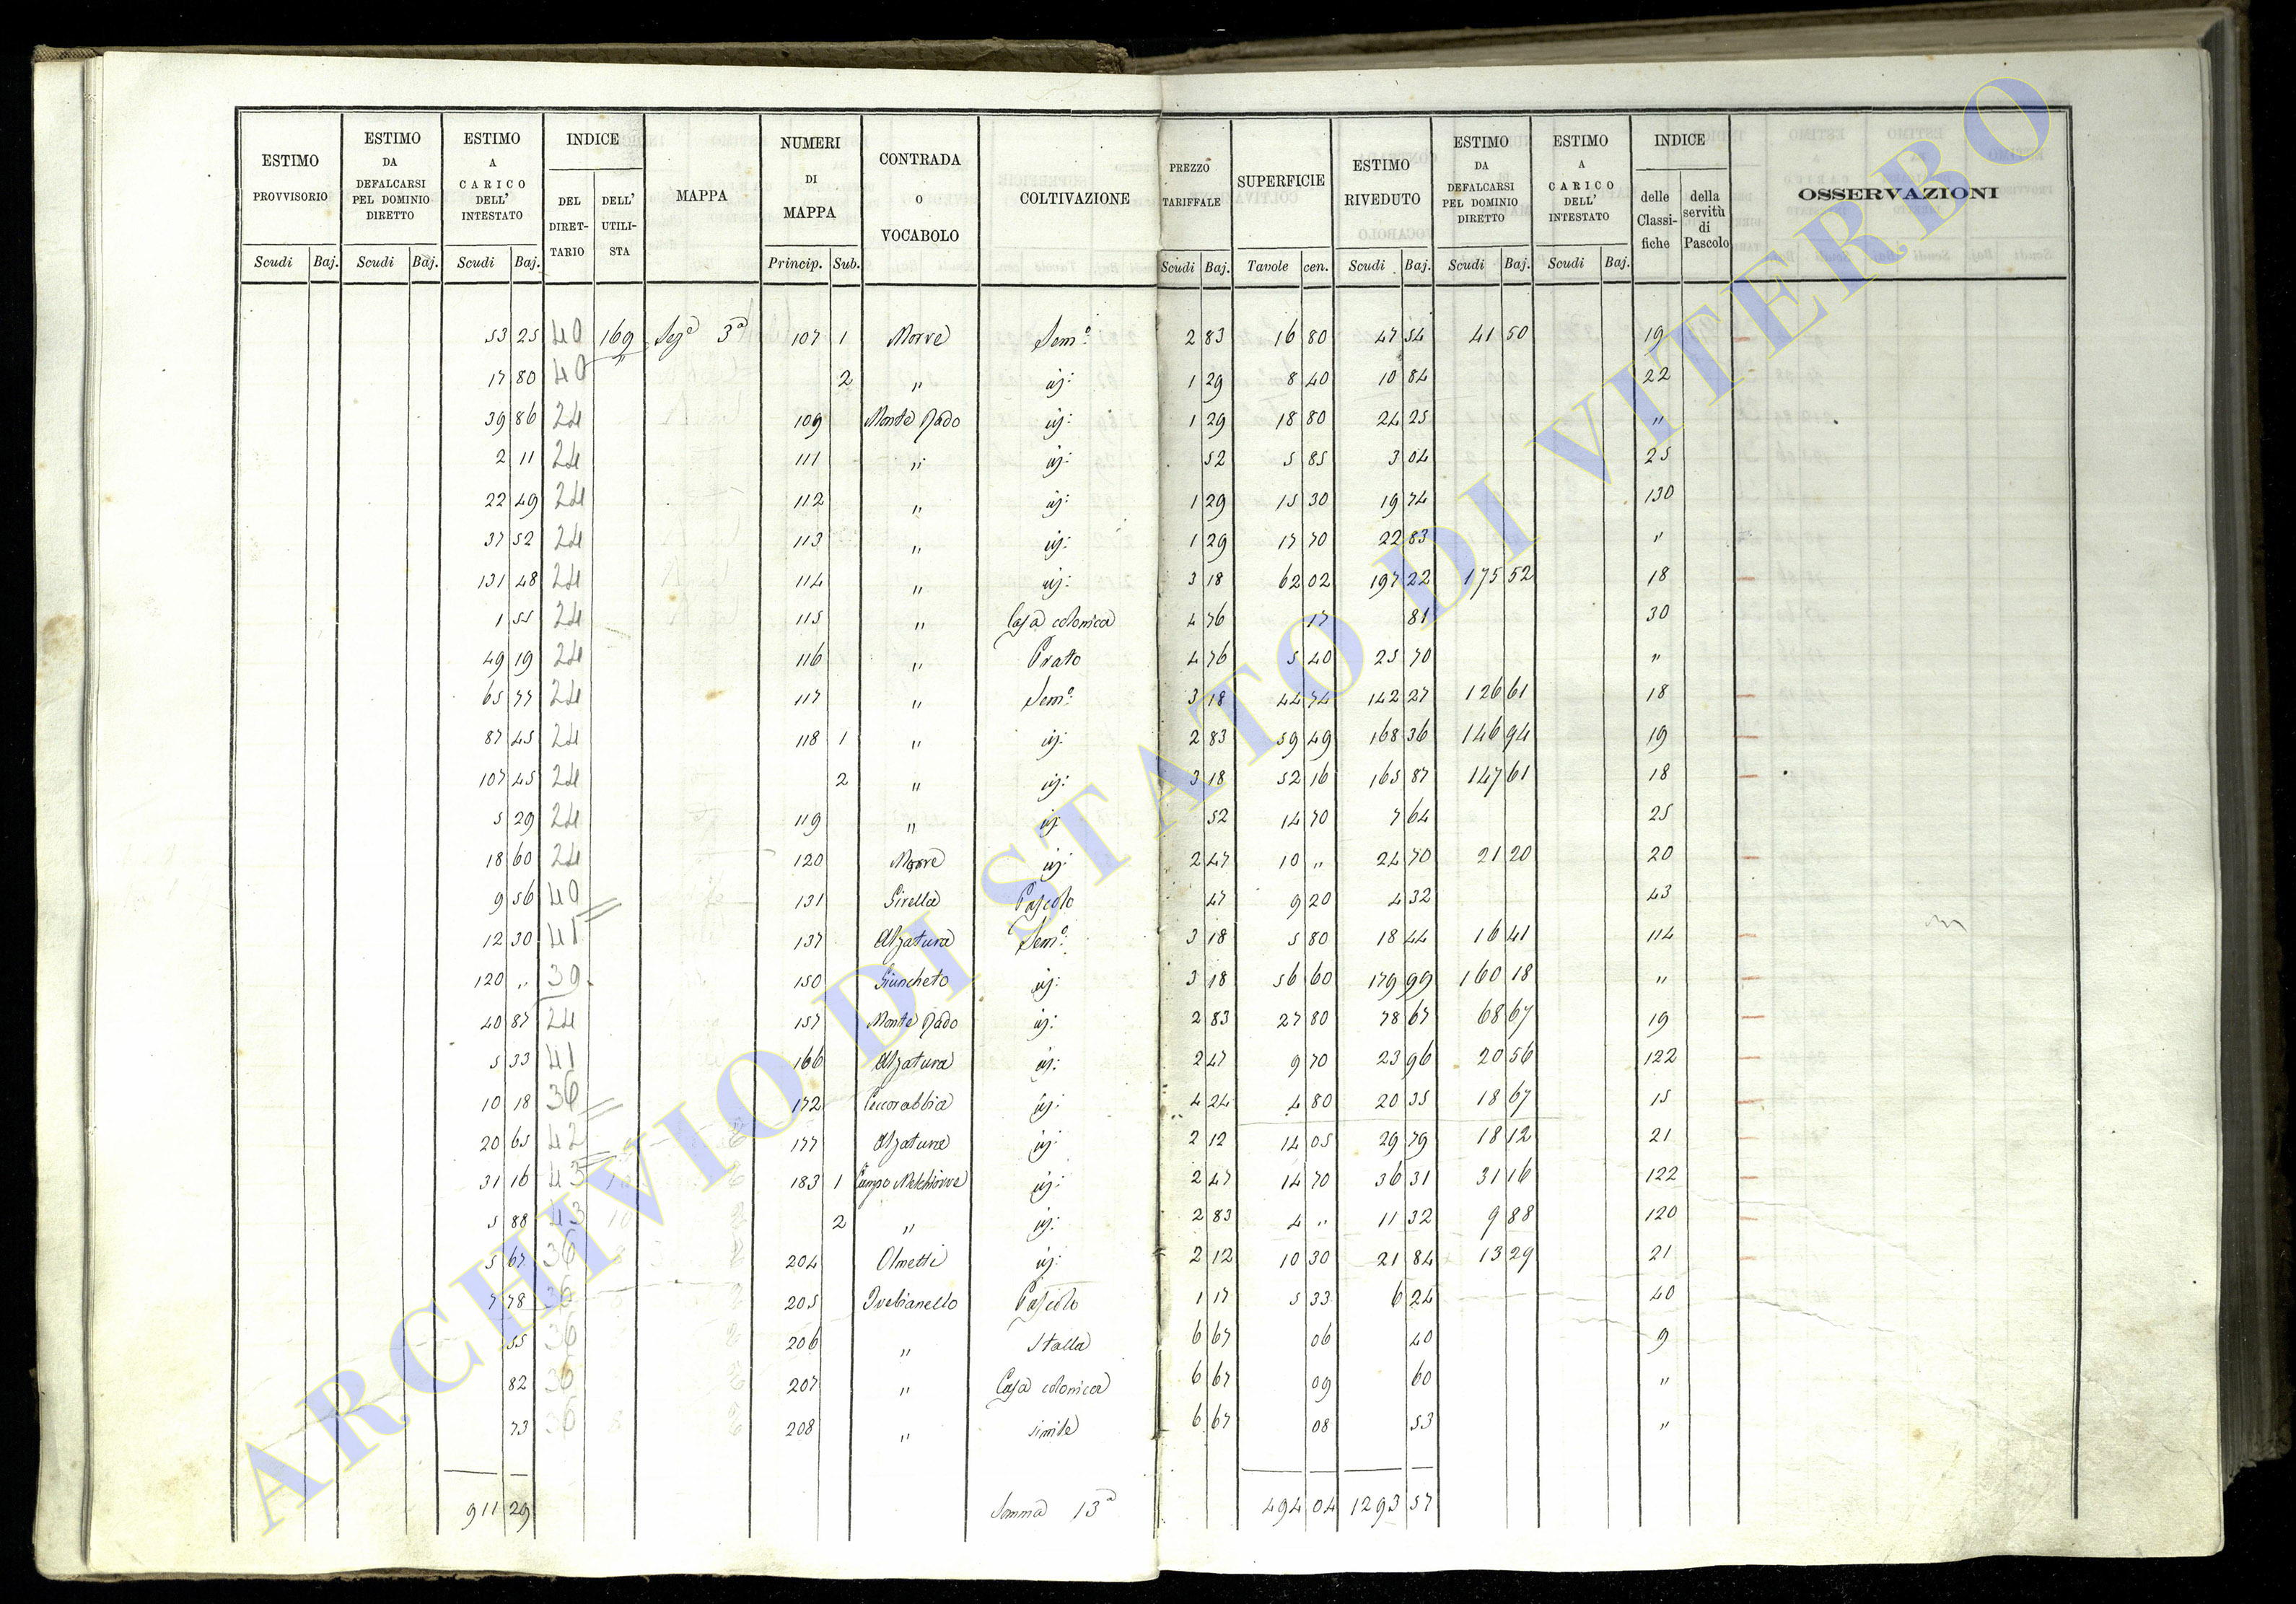 ESTIMO PROVVISORIO
Scudi Baj.
ESTIMO DA DEFALCARSI PEL DOMINIO DIRETTO
Scudi Baj.
ESTIMO A CARICO DELL' INTESTATO
Scudi Baj.
INDICE
DEL DIRET-TARIO
DELL' UTILI-STA
MAPPA
NUMERI DI MAPPA
Princip. Sub.
CONTRADA O VOCABOLO
COLTIVAZIONE
PREZZO TARIFFALE
Scudi Baj.
SUPERFICIE
Tavole cen.
ESTIMO RIVEDUTO
Scudi Baj.
ESTIMO DA DEFALCARSI PEL DOMINIO DIRETTO
Scudi Baj.
ESTIMO A CARICO DELL' INTESTATO
Scudi Baj.
INDICE
delle Classi-fiche
della servitù di Pascolo
OSSERVAZIONI
53 25 40 169 Sez.e 3a 107 1 Morre Sem.o 2 83 16 80 47 54 41 50 19
17 80 40 " 2 " id: 1 29 8 40 10 84 22
39 86 24 109 Monte Rado id: 1 29 18 80 24 25 "
2 11 24 111 " id: 52 5 85 3 04 25
22 49 24 112 " id: 1 29 15 30 19 74 130
37 52 24 113 " id: 1 29 17 70 22 83 "
131 48 24 114 " id: 3 18 62 02 197 22 175 52 18
1 55 24 115 " Casa colonica 4 76 17 81 30
49 19 24 116 " Prato 4 76 5 40 25 70 "
65 77 24 117 " Sem.o 3 18 44 74 142 27 126 61 18
87 45 24 118 1 " id: 2 83 59 49 168 36 146 94 19
107 45 24 2 " id: 3 18 52 16 165 87 147 61 18
5 29 24 119 " id: 52 14 70 7 64 25
18 60 24 120 Morre id: 2 47 10 " 24 70 21 20 20
9 56 40 131 Girella Pascolo 47 9 20 4 32 43
12 30 41 137 Alzatura Sem.o 3 18 5 80 18 44 16 41 114
120 " 39 150 Giuncheto id: 3 18 56 60 179 99 160 18 "
40 87 24 157 Monte Rado id: 2 83 27 80 78 67 68 67 19
5 33 41 166 Alzatura id: 2 47 9 70 23 96 20 56 122
10 18 36 172 Ceccorabbia id: 4 24 4 80 20 35 18 67 15
20 65 42 177 Alzatura id: 2 12 14 05 29 79 18 12 21
31 16 43 183 1 Campo Melchiorre id: 2 47 14 70 36 31 31 16 122
5 88 43 2 " id: 2 83 4 " 11 32 9 88 120
5 67 36 204 Olmetti id: 2 12 10 30 21 84 13 29 21
7 78 36 205 Trebianello Pascolo 1 17 5 33 6 24 40
55 36 206 " Stalla 6 67 06 40 9
82 36 207 " Casa colonica 6 67 09 60 "
73 36 208 " simile 6 67 08 53 "
911 29 Somma 13a 494 04 1293 57
ARCHIVIO DI STATO DI VITERBO